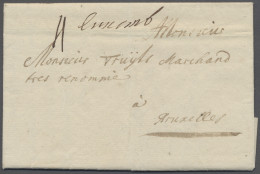 Luxemb
A Monsieur
Monsieur Truÿts Marchand
tres renommé
à
Bruxelles